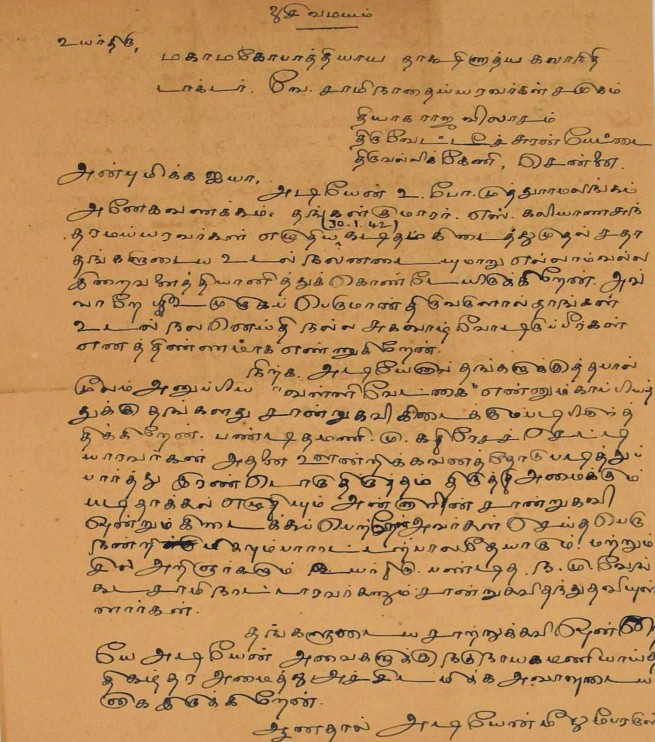 சிவமயம்
உயர்திரு,
மகாமகோபாத்தியாய தாக்ஷிணாத்ய கலாநிதி
டாக்டர். வே. சாமிநாதைய்யரவர்கள் சமுகம்
தியாகராஜ விலாசம்
திருவேட்டீசுரன் பேட்டை
திருவல்லிக்கேணி, சென்னை.
அன்புமிக்க ஐயா,
அடியேன் உ. போ. முத்துராமலிங்கம்
அனேக வணக்கம். தங்கள் குமாரர். எஸ். கலியாணசுந்
(30.1.42)
தரமய்யரவர்கள் எழுதிய கடிதம் கிடைத்தது முதல் சதா
தங்களுடைய உடல் நலனடையுமாறு எல்லாம்வல்ல
இறைவனைத்தியானித்துக் கொண்டேயிருக்கிறேன். அவ்
வாறே பெருமான் திருவருளால் தாங்கள்
உடல் நலனெய்தி நல்ல சுகவாழ்வோடிருப்பீர்கள்
எனத்திண்ணமாக எண்ணுகிறேன்.
நிற்க. அடியேனால் தங்களுக்குத்தபால்
மூலம் அனுப்பிய "வள்ளி வேட்கை" என்னும் காப்பியத்
துக்கு தங்களது சாற்றுகவி கிடைக்கும்படி பிரார்த்
திக்கிறேன். பண்டிதமணி. மு. கதிரேசச் செட்டி
யாரவர்கள் அதனை ஊன்றிக்கவனத்தோடு படித்துப்
பார்த்து இரண்டொரு திருத்தம் திருத்தி அமைக்கும்
படி தாக்கல் எழுதியும் அன்னாரின் சாற்றுகவி
யொன்றும் கிடைக்கப் பெற்றேன் அவர்கள் செய்த பெரு
நன்றி மிகவும் பாராட்டற்பாலதேயாகும். மற்றும்
சில அறிஞர்களும் உயர்திரு. பண்டித ந. மு. வேங்
கடசாமி நாட்டாரவர்களும் சாற்றுகவி தந்துதவியுள்
ளார்கள்.
தங்களுடைய சாற்றுக்கவி யொன்றை
யே அடியேன் அவைகளுக்கு நடுநாயகமணியாய்த்
திகழ்தர அமைத்து அச்சிட மிக்க அவாவுடைய
னாக இருக்கிறேன்.
ஆனதால் அடியேன் மீது பேரருள்